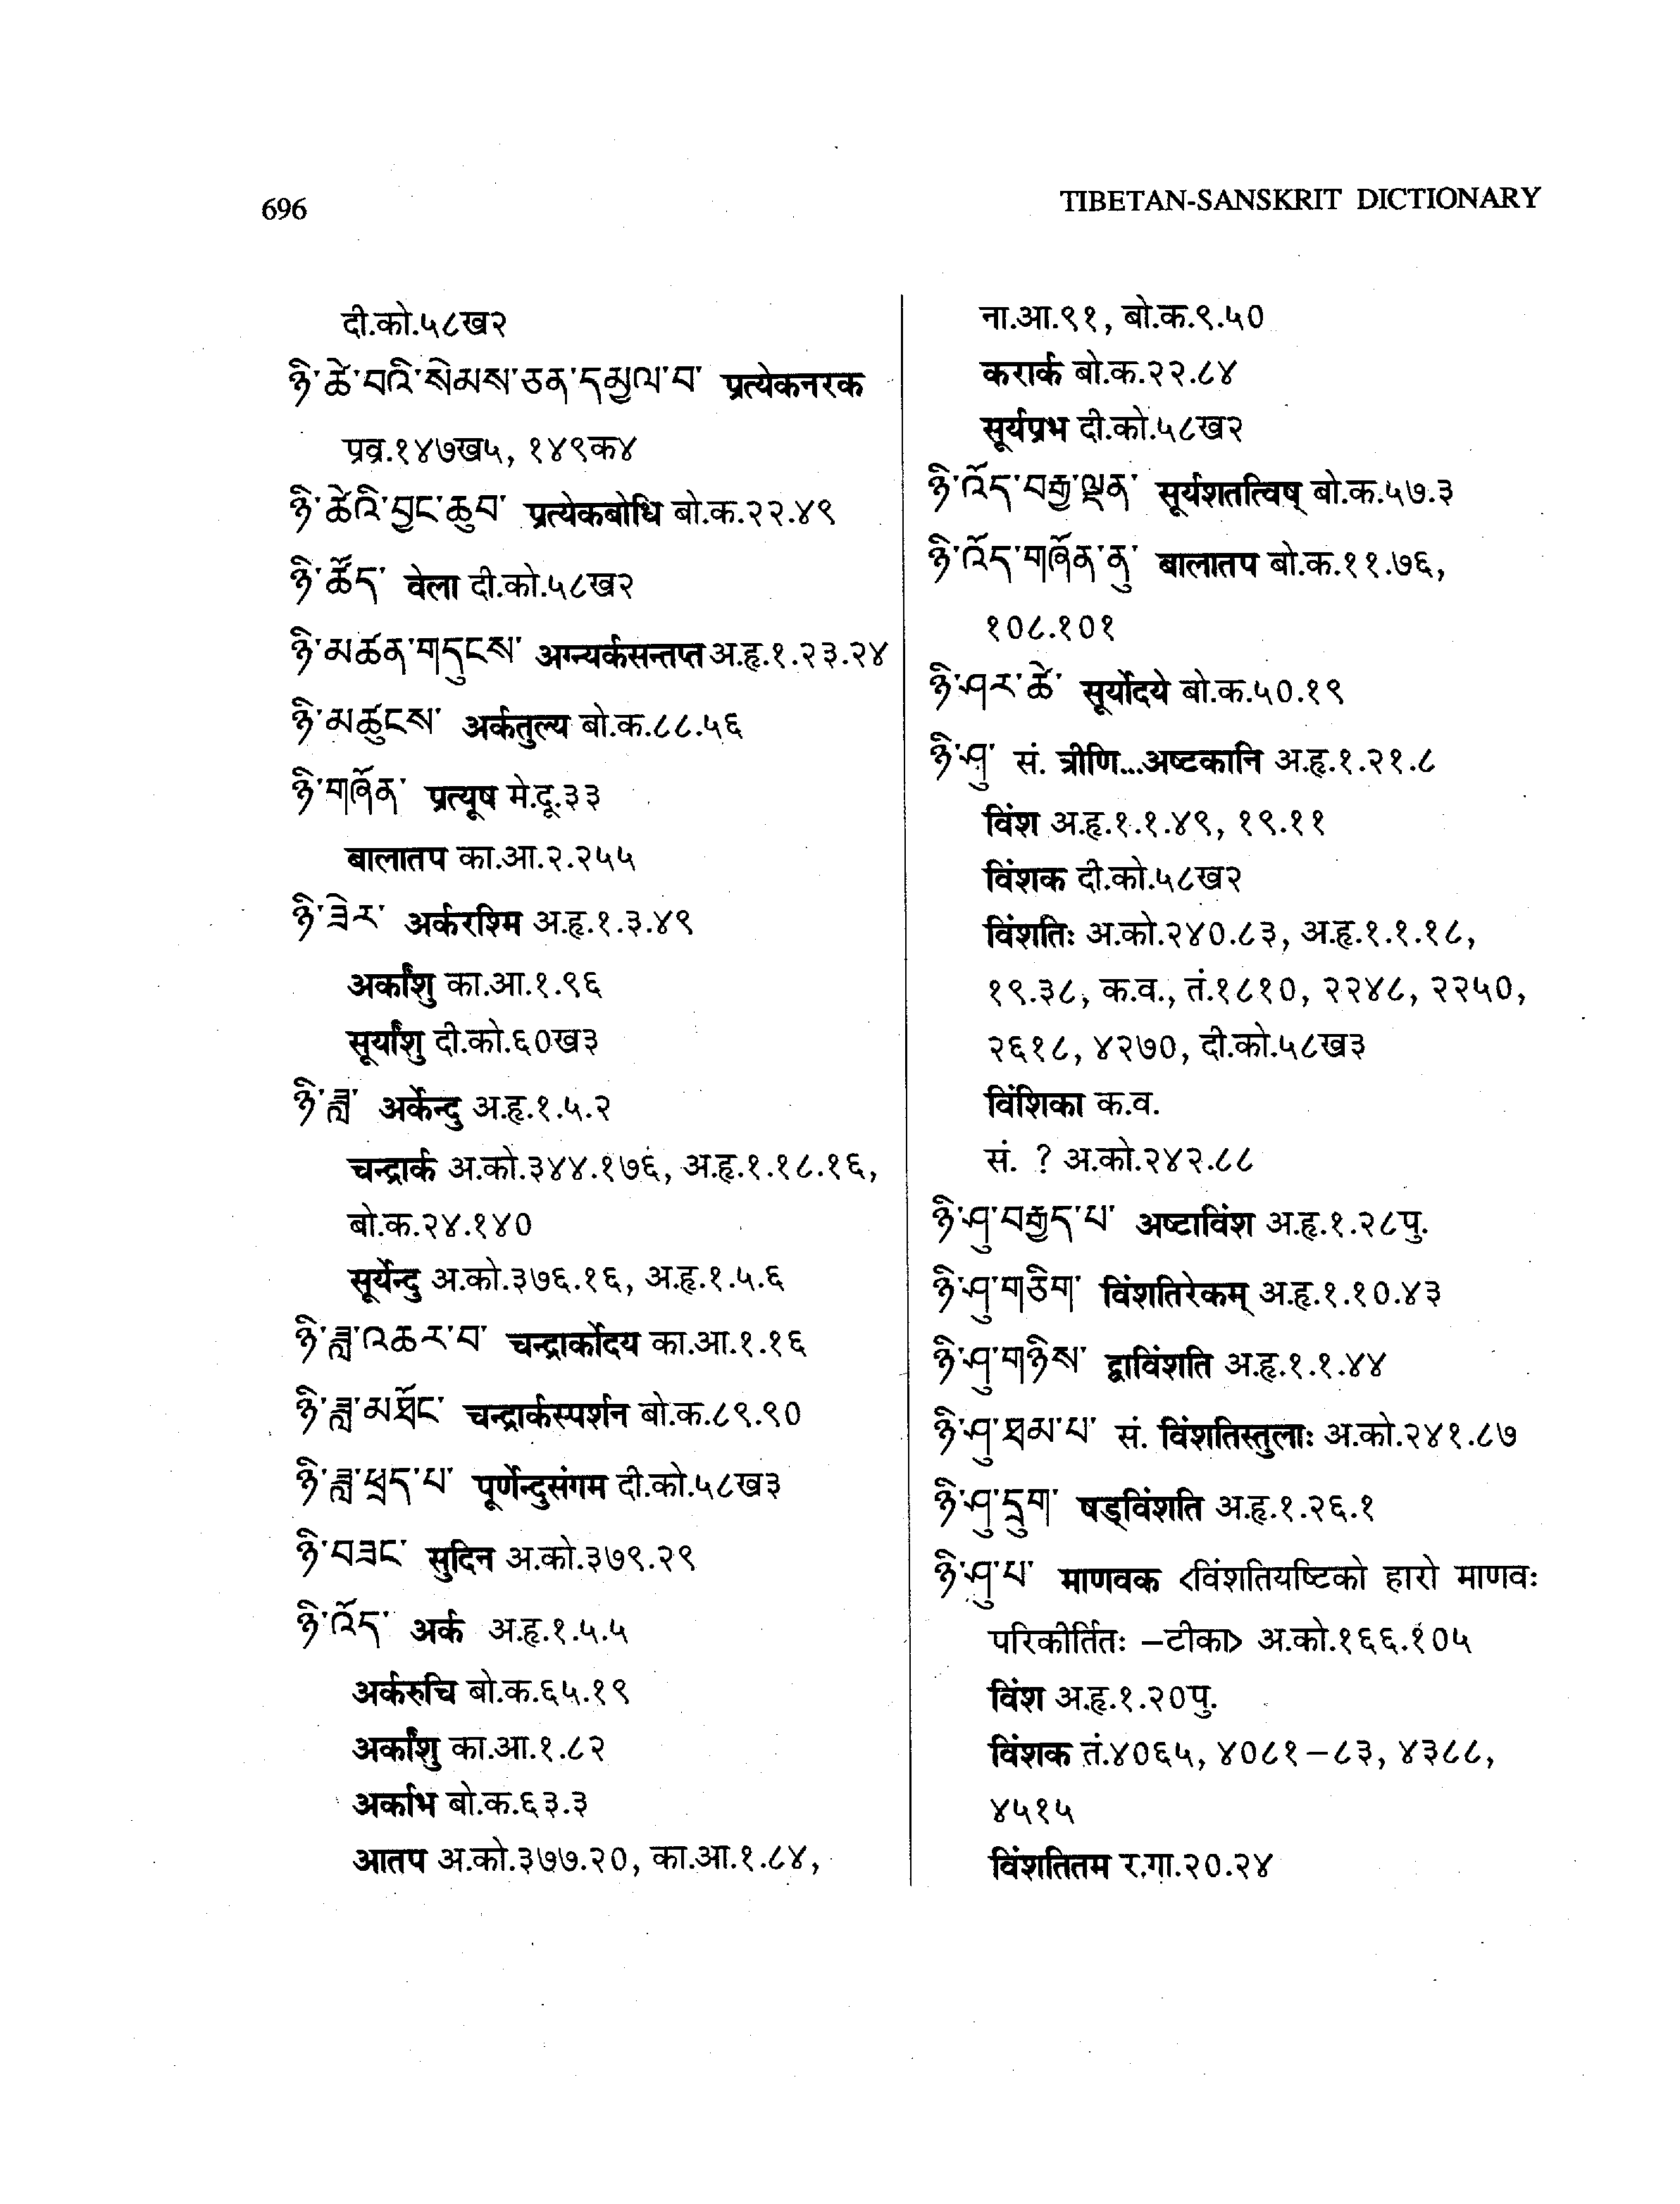 696
TIBETAN-SANSKRIT DICTIONARY
दी.को.५८ख२
ཉི་ཚེ་བའི་སེམས་ཅན་དམྱལ་བ་ प्रत्येकनरक
प्रव्र.१४७ख५, १४९क४
ཉི་ཚེའི་བྱང་ཆུབ་ प्रत्येकबोधि बो.क.२२.४९
ཉི་ཚོད་ वेला दी.को.५८ख२
ཉི་མཚན་གདུངས་ अग्न्यर्कसन्तप्त अ.हृ.१.२३.२४
ཉི་མཚུངས་ अर्कतुल्य बो.क.८८.५६
ཉི་གཞོན་ प्रत्यूष मे.दू.३३
बालातप का.आ.२.२५५
ཉི་ཟེར་ अर्करश्मि अ.हृ.१.३.४९
अर्कांशु का.आ.१.९६
सूर्यांशु दी.को.६०ख३
ཉི་ཟླ་ अर्केन्दु अ.हृ.१.५.२
चन्द्रार्क अ.को.३४४.१७६, अ.हृ.१.१८.१६,
बो.क.२४.१४०
सूर्येन्दु अ.को.३७६.१६, अ.हृ.१.५.६
ཉི་ཟླ་འཆར་བ་ चन्द्रार्कोदय का.आ.१.१६
ཉི་ཟླ་མཐོང་ चन्द्रार्कस्पर्शन बो.क.८९.९०
ཉི་ཟླ་ཕྲད་པ་ पूर्णेन्दुसंगम दी.को.५८ख३
ཉི་བཟང་ सुदिन अ.को.३७९.२९
ཉི་འོད་ अर्क अ.हृ.१.५.५
अर्करुचि बो.क.६५.१९
अर्कांशु का.आ.१.८२
अर्काभ बो.क.६३.३
आतप अ.को.३७७.२०, का.आ.१.८४,
ना.आ.९१, बो.क.९.५०
करार्क बो.क.२२.८४
सूर्यप्रभ दी.को.५८ख२
ཉི་འོད་བརྒྱ་ལྡན་ सूर्यशतत्विष् बो.क.५७.३
ཉི་འོད་གཞོན་ནུ་ बालातप बो.क.११.७६,
१०८.१०१
ཉི་ཤར་ཚེ་ सूर्योदये बो.क.५०.१९
ཉི་ཤུ་ सं. त्रीणि...अष्टकानि अ.हृ.१.२१.८
विंश अ.हृ.१.१.४९, १९.११
विंशक दी.को.५८ख२
विंशतिः अ.को.२४०.८३, अ.हृ.१.१.१८,
१९.३८, क.व., तं.१८१०, २२४८, २२५०,
२६१८, ४२७०, दी.को.५८ख३
विंशिका क.व.
सं. ? अ.को.२४२.८८
ཉི་ཤུ་བརྒྱད་པ་ अष्टाविंश अ.हृ.१.२८पु.
ཉི་ཤུ་གཅིག་ विंशतिरेकम् अ.हृ.१.१०.४३
ཉི་ཤུ་གཉིས་ द्वाविंशति अ.हृ.१.१.४४
ཉི་ཤུ་ཐམ་པ་ सं. विंशतिस्तुलाः अ.को.२४१.८७
ཉི་ཤུ་དྲུག་ षड्विंशति अ.हृ.१.२६.१
ཉི་ཤུ་པ་ माणवक <विंशतियष्टिको हारो माणवः
परिकीर्तितः –टीका> अ.को.१६६.१०५
विंश अ.हृ.१.२०पु.
विंशक तं.४०६५, ४०८१–८३, ४३८८,
४५१५
विंशतितम र.गा.२०.२४